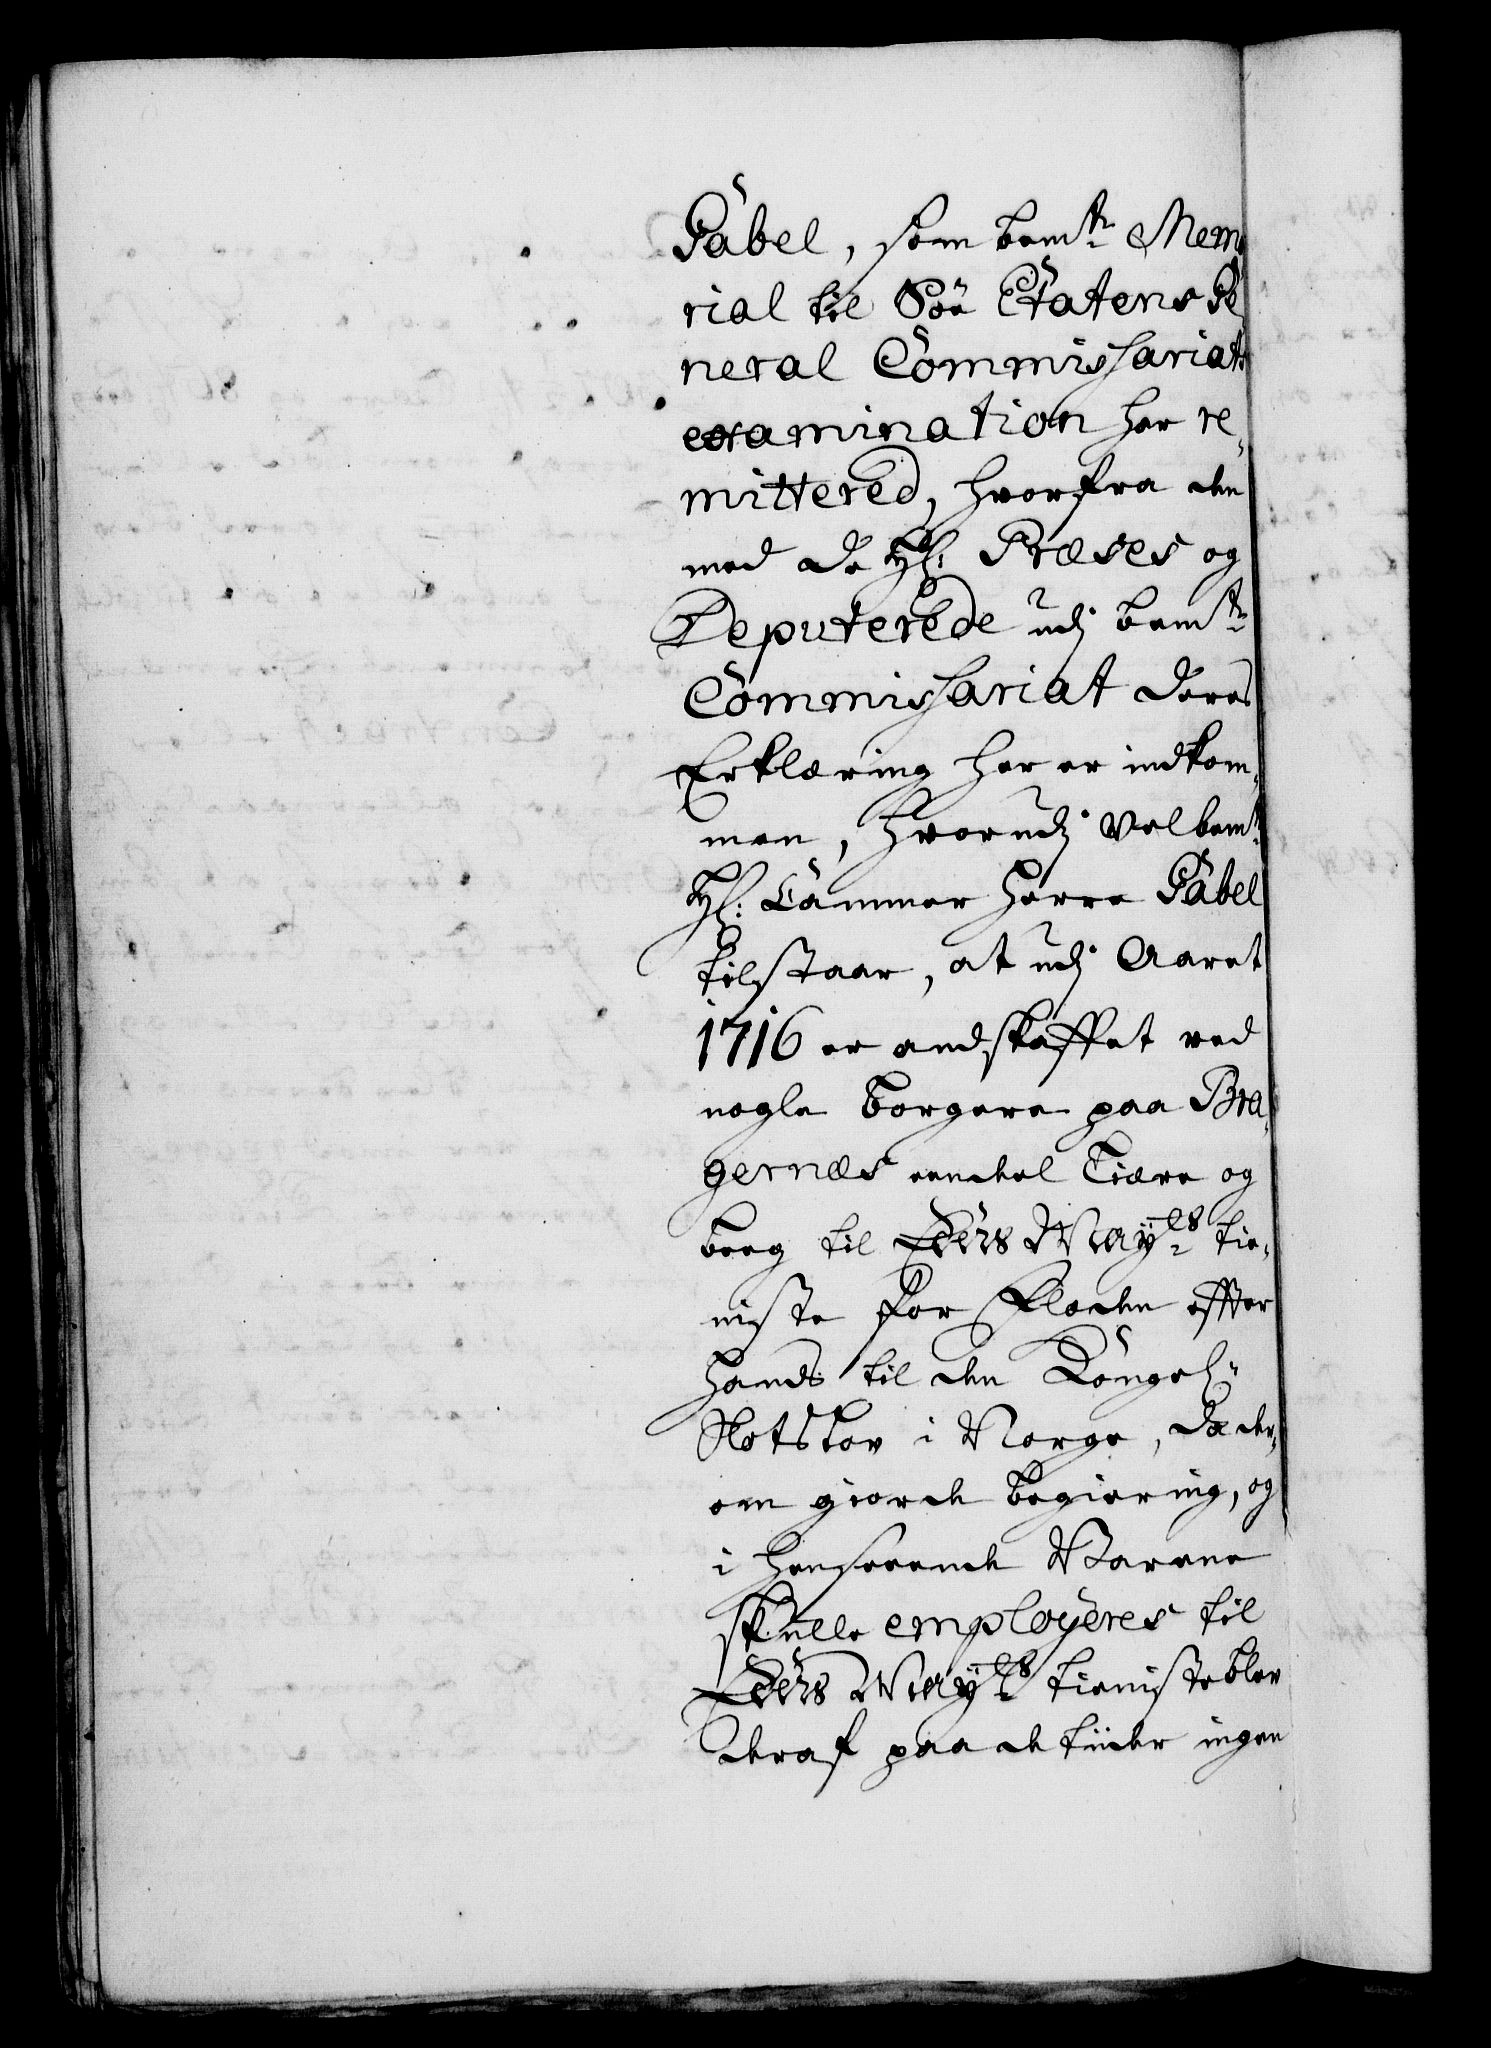 Gabel, som bemte Memo
rial til Søe Etatens Ge,
neral Commissariats
examination har re,
mittered, hvorfra den
med de Hl: Præses og
Deputerede udj bemte
Commissariat deres
Erklæring her er indkom,
men, hvorudj Velbemte
Hl: Cammer Herre Gabel
tilstaar, at udj Aaret
1716 er andskaffet ved
nogle borgere paa Bra,
gernæs eendel Tiære og
beeg til Eders Mayts tie,
niste for Floden effter
haands til den Kongel:
Slotslov i Norge, da der,
om giorde begiering, og
i henseende Varene
skulle employeres til
Eders Mayts tieniste blev
deraf paa de tiider ingen